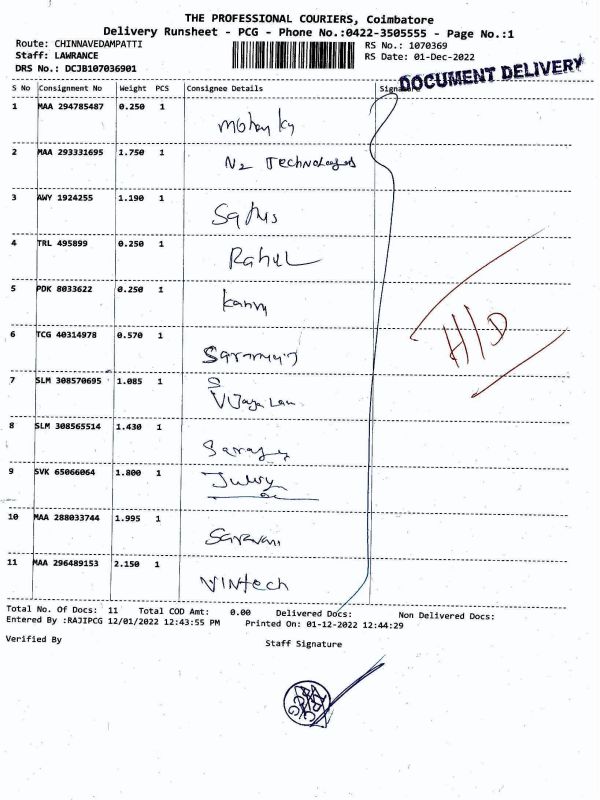 THE PROFESSIONAL COURIERS, Coimbatore
Delivery Runsheet - PCG - Phone No.:0422-3505555 - Page No.:1
Route: CHINNAVEDAMPATTI RS No.: 1070369
Staff: LAWRANCE RS Date: 01-Dec-2022
DRS No.: DCJB107036901
DOCUMENT DELIVERY
S No Consignment No Weight PCS Consignee Details
1 MAA 294785487 0.250 1
2 MAA 293331695 1.750 1 N2 Technologies
3 AWY 1924255 1.190 1
4 TRL 495899 0.250 1 Rahul
5 PDK 8033622 0.250 1
6 TCG 40314978 0.570 1
7 SLM 308570695 1.085 1
8 SLM 308565514 1.430 1
9 SVK 65066064 1.800 1
10 MAA 288033744 1.995 1
11 MAA 296489153 2.150 1 VINtech
H/D
Total No. Of Docs: 11 Total COD Amt: 0.00 Delivered Docs: Non Delivered Docs:
Entered By :RAJIPCG 12/01/2022 12:43:55 PM Printed On: 01-12-2022 12:44:29
Verified By Staff Signature